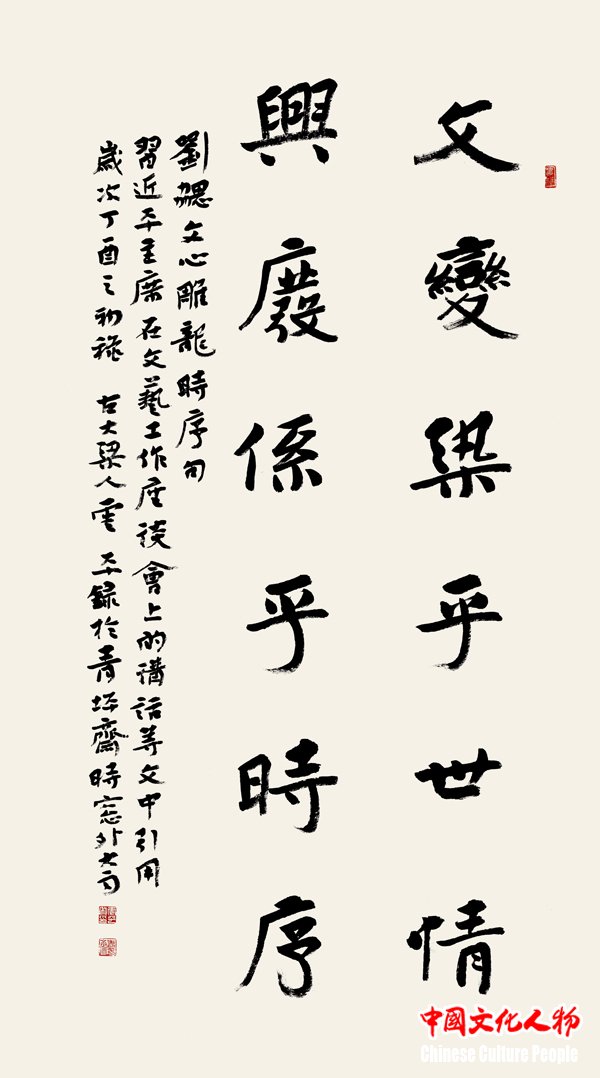 文變染乎世情
興廢係乎時序
劉勰文心雕龍時序句
習近平主席在文藝工作座談會上的講話等文中引用
歲次丁酉之初秋 古大梁人雲平錄於青坪齋時窓外大雨
中國文化人物
Chinese Culture People